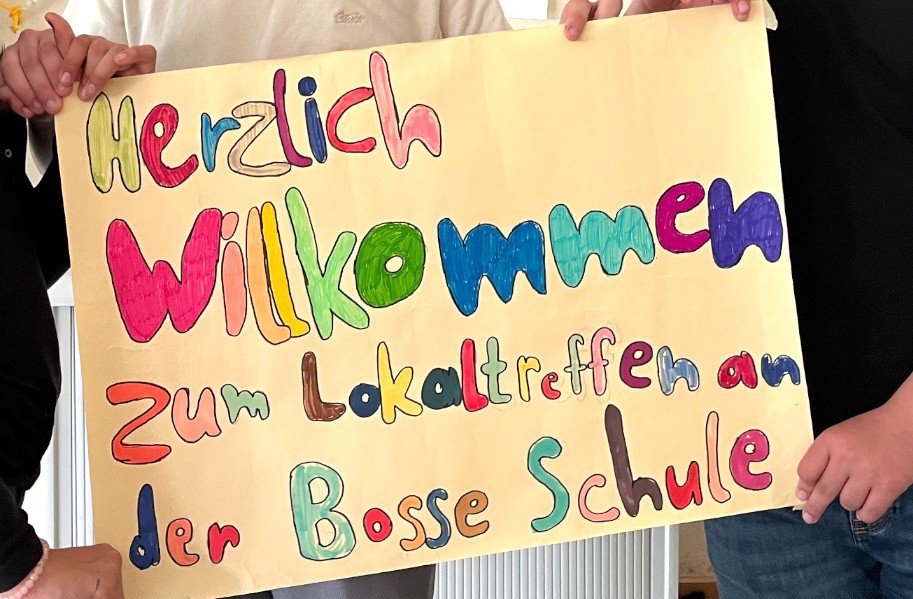 Herzlich
Willkommen
zum Lokaltreffen an
der Bosse Schule